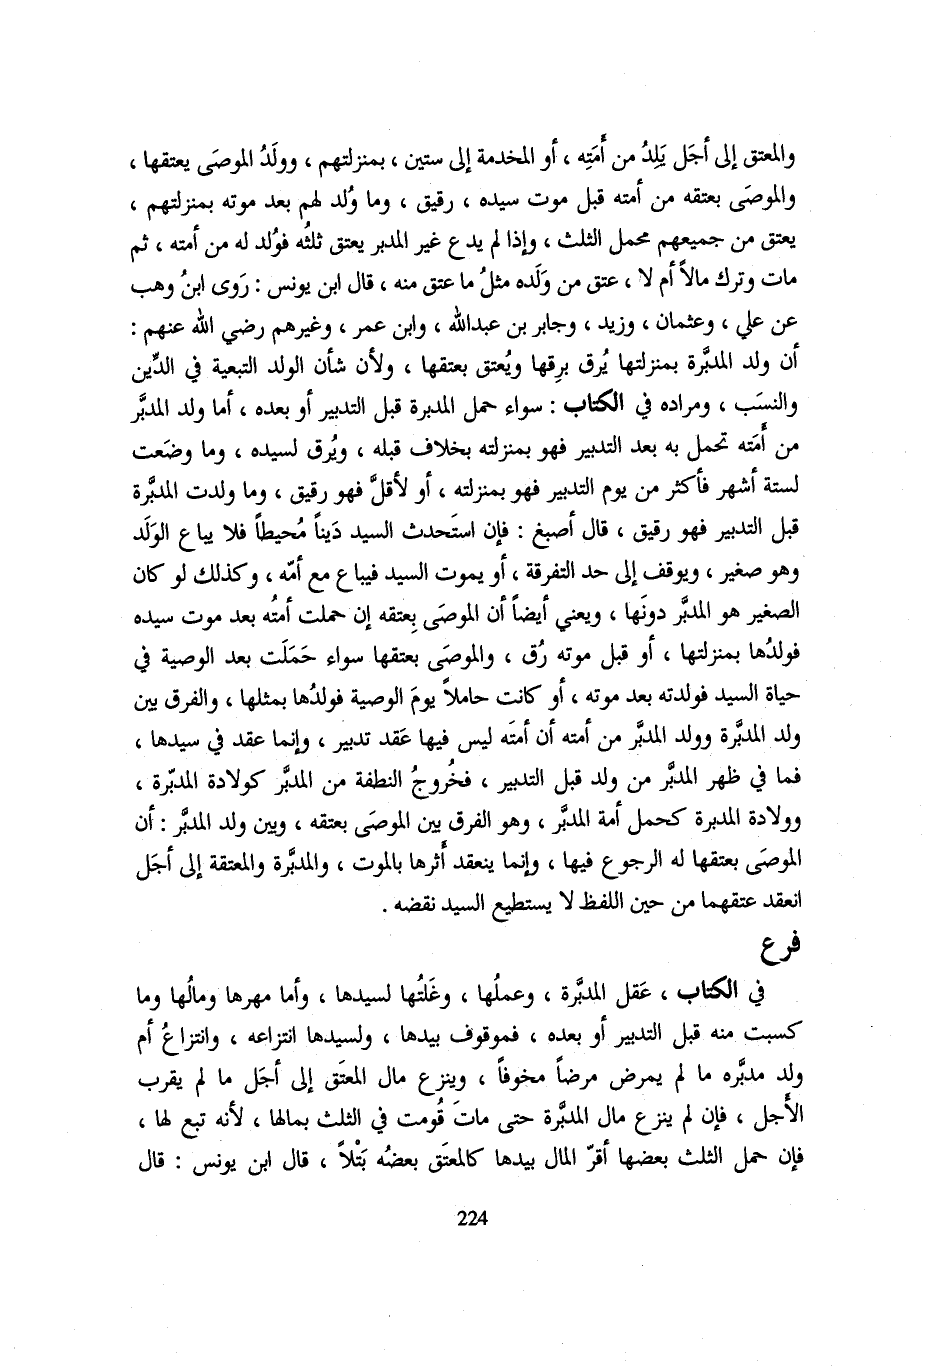 والمعتق إلى أجَل يَلِدُ من أَمَتِه ، أو المخدمة إلى ستين ، بمنزلتهم ، وولَدُ الموصَى يعتقها ،
والموصَى بعتقه من أمته قبل موت سيده ، رقيق ، وما وُلد لهم بعد موته بمنزلتهم ،
يعتق من جميعهم محمل الثلث ، وإذا لم يدع غير المدبر يعتق ثلثُه فوُلد له من أمته ، ثم
مات وترك مالاً أم لا ، عتق من وَلَده مثلُ ما عتق منه ، قال ابن يونس : رَوى ابنُ وهب
عن علي ، وعثمان ، وزيد ، وجابر بن عبدالله ، وابن عمر ، وغيرهم رضي الله عنهم :
أن ولد المدبَّرة بمنزلتها يُرق برِقها ويُعتق بعتقها ، ولأن شأن الولد التبعية في الدِّين
والنسَب ، ومراده في الكتاب : سواء حمل المدبرة قبل التدبير أو بعده ، أما ولد المدبَّر
من أَمَته تحمل به بعد التدبير فهو بمنزلته بخلاف قبله ، ويُرق لسيده ، وما وضَعت
لستة أشهر فأكثر من يوم التدبير فهو بمنزلته ، أو لأقلَّ فهو رقيق ، وما ولدت المدبَّرة
قبل التدبير فهو رقيق ، قال أصبغ : فإن استَحدث السيد دَيناً مُحيطاً فلا يباع الوَلَد
وهو صغير ، ويوقف إلى حد التفرقة ، أو يموت السيد فيباع مع أمّه ، وكذلك لو كان
الصغير هو المدبَّر دونَها ، ويعني أيضاً أن الموصَى بِعتقه إن حملت أمتُه بعد موت سيده
فولدُها بمنزلتها ، أو قبل موته رُق ، والموصَى بعتقها سواء حَمَلَت بعد الوصية في
حياة السيد فولدته بعد موته ، أو كانت حاملاً يومَ الوصية فولدُها بمثلها ، والفرق بين
ولد المدبَّرة وولد المدبَّر من أمته أن أمتَه ليس فيها عَقد تدبير ، وإنما عقد في سيدها ،
فما في ظهر المدبَّر من ولد قبل التدبير ، فخُروجُ النطفة من المدبَّر كولادة المدبّرة ،
وولادة المدبرة كحمل أمة المدبَّر ، وهو الفرق بين الموصَى بعتقه ، وبين ولد المدبَّر : أن
الموصَى بعتقها له الرجوع فيها ، وإنما ينعقد أَثرها بالموت ، والمدبَّرة والمعتقة إلى أجَل
انعقد عتقهما من حين اللفظ لا يستطيع السيد نقضه .
فرع
في الكتاب ، عَقل المدبَّرة ، وعملُها ، وغَلتُها لسيدها ، وأما مهرها ومالُها وما
كسبت منه قبل التدبير أو بعده ، فموقوف بيدها ، ولسيدها انتزاعه ، وانتزاعُ أم
ولد مدبَّره ما لم يمرض مرضاً مخوفاً ، وينزع مال المعتَق إلى أجَل ما لم يقرب
الأَجل ، فإن لم ينزع مال المدبَّرة حتى ماتَ قُومت في الثلث بمالها ، لأنه تبع لها ،
فإن حمل الثلث بعضها أقرّ المال بيدها كالمعتَق بعضُه بَتْلاً ، قال ابن يونس : قال
224